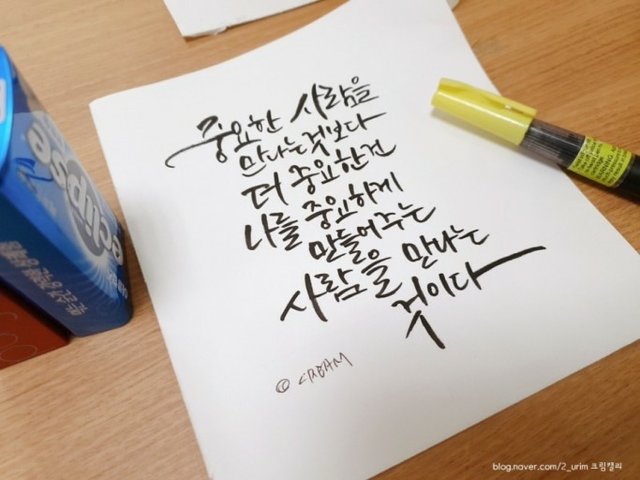 중요한 사람을
만나는것보다
더 중요한건
나를 중요하게
만들어주는
사람을 만나는
것이다
© CREAM
eclipse
blog.naver.com/2_urim 크림캘리